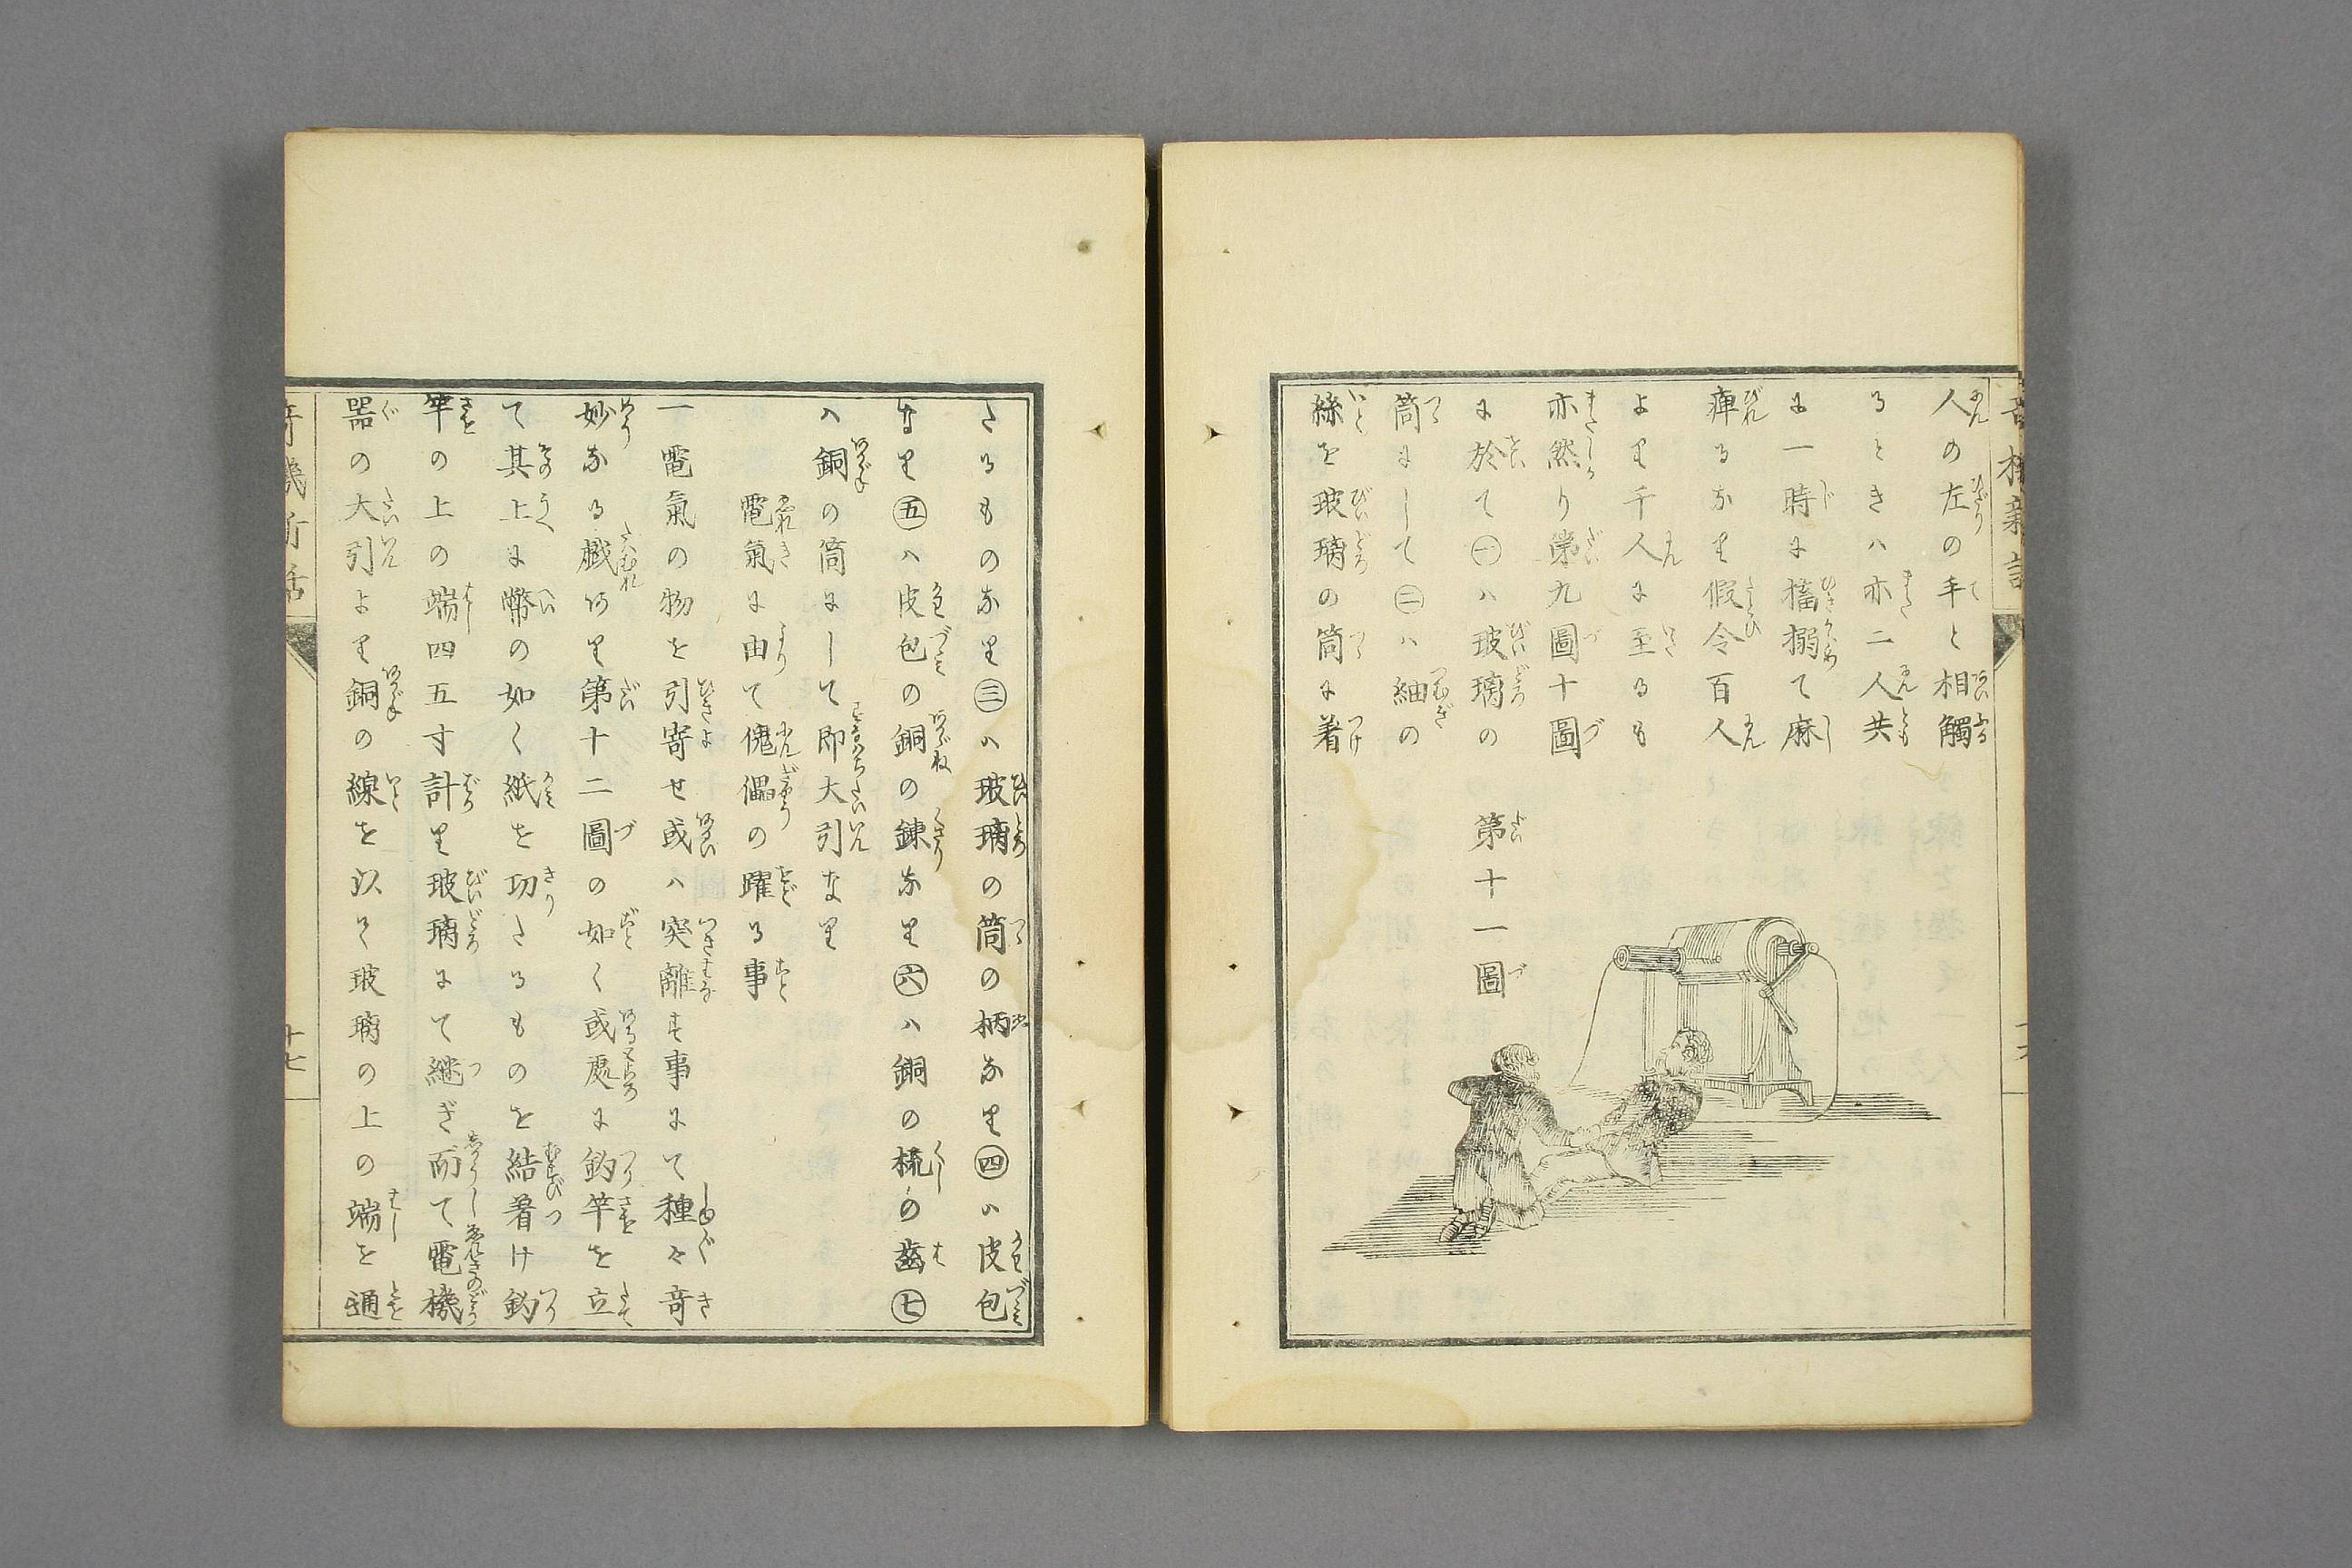 人の左の手と相觸
るときハ亦二人共
に一時に搐搦て麻
痺るなり假令百人
より千人に至るも
亦然り第九圖十圖
に於て㊀ハ玻璃の
筒にして㊁ハ紬の
絲を玻璃の筒に着
第十一圖
たるものなり㊂ハ玻璃の筒の柄なり㊃ハ皮包
なり㊄ハ皮包の銅の鏈なり㊅ハ銅の梳の齒㊆
ハ銅の筒にして即大引なり
電氣に由て傀儡の躍る事
一電氣の物を引寄せ或ハ突離す事にて種々竒
妙なる戯有り第十二圖の如く或處に釣竿を立
て其上に幣の如く紙を切たるものを結着け釣
竿の上の端四五寸計り玻璃にて継ぎ而て電機
噐の大引より銅の線を以て玻璃の上の端を通
十七